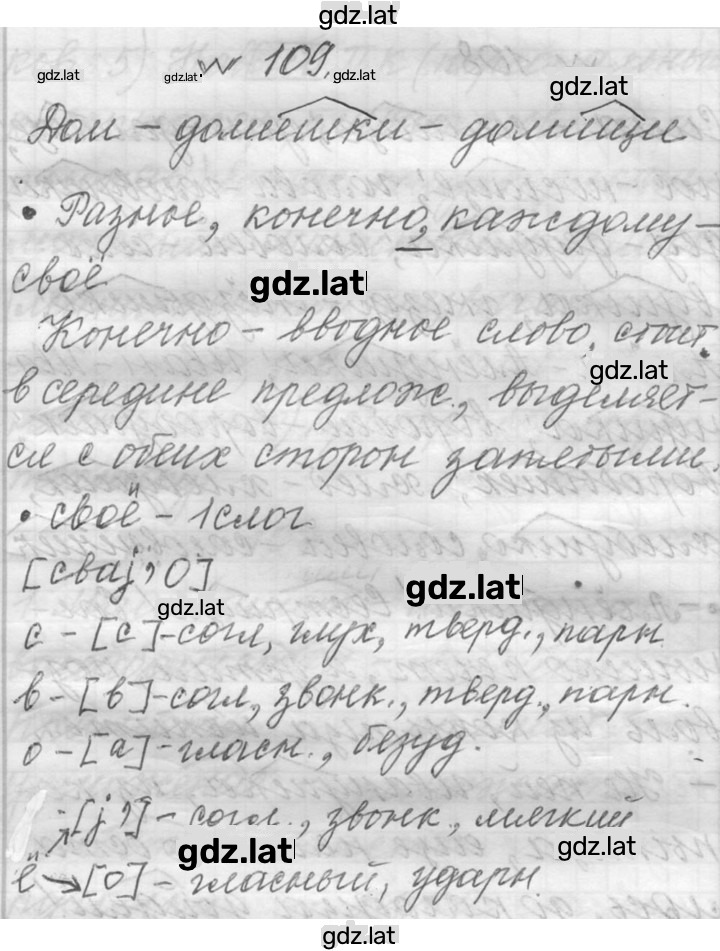 gdz.lat
№ 109.
gdz.lat gdz.lat gdz.lat gdz.lat
Дом – домишки – домищи
• Разное, конечно, каждому –
своё
gdz.lat
Конечно – вводное слово, стоит
gdz.lat
в середине предлож., выделяет-
ся с обеих сторон запятыми.
• своё – 1 слог
[сваj'о]
gdz.lat
gdz.lat
с – [с] – согл, глух, тверд., парн
в – [в] – согл, звонк., тверд., парн.
о – [а] – гласн., безуд.
[j'] – согл., звонк., мягкий
gdz.lat gdz.lat
ё → [о] – гласный, ударн
gdz.lat